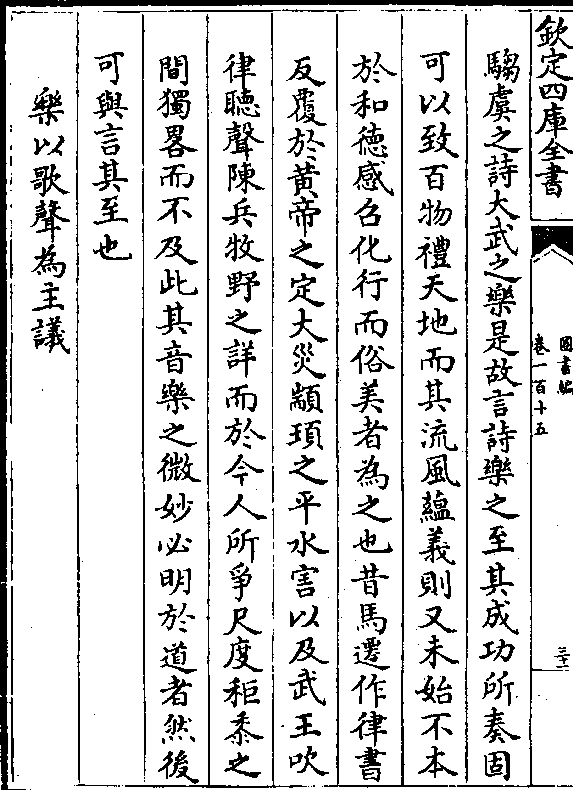 欽定四庫全書
圖書編
卷一百十五
三十二
騶虞之詩大武之樂是故言詩樂之至其成功所奏固
可以致百物禮天地而其流風蘊義則又未始不本
於和德感召化行而俗美者為之也昔馬遷作律書
反覆於黃帝之定大災顓頊之平水害以及武王吹
律聽聲陳兵牧野之詳而於今人所爭尺度秬黍之
間獨畧而不及此其音樂之微妙必明於道者然後
可與言其至也
樂以歌聲為主議